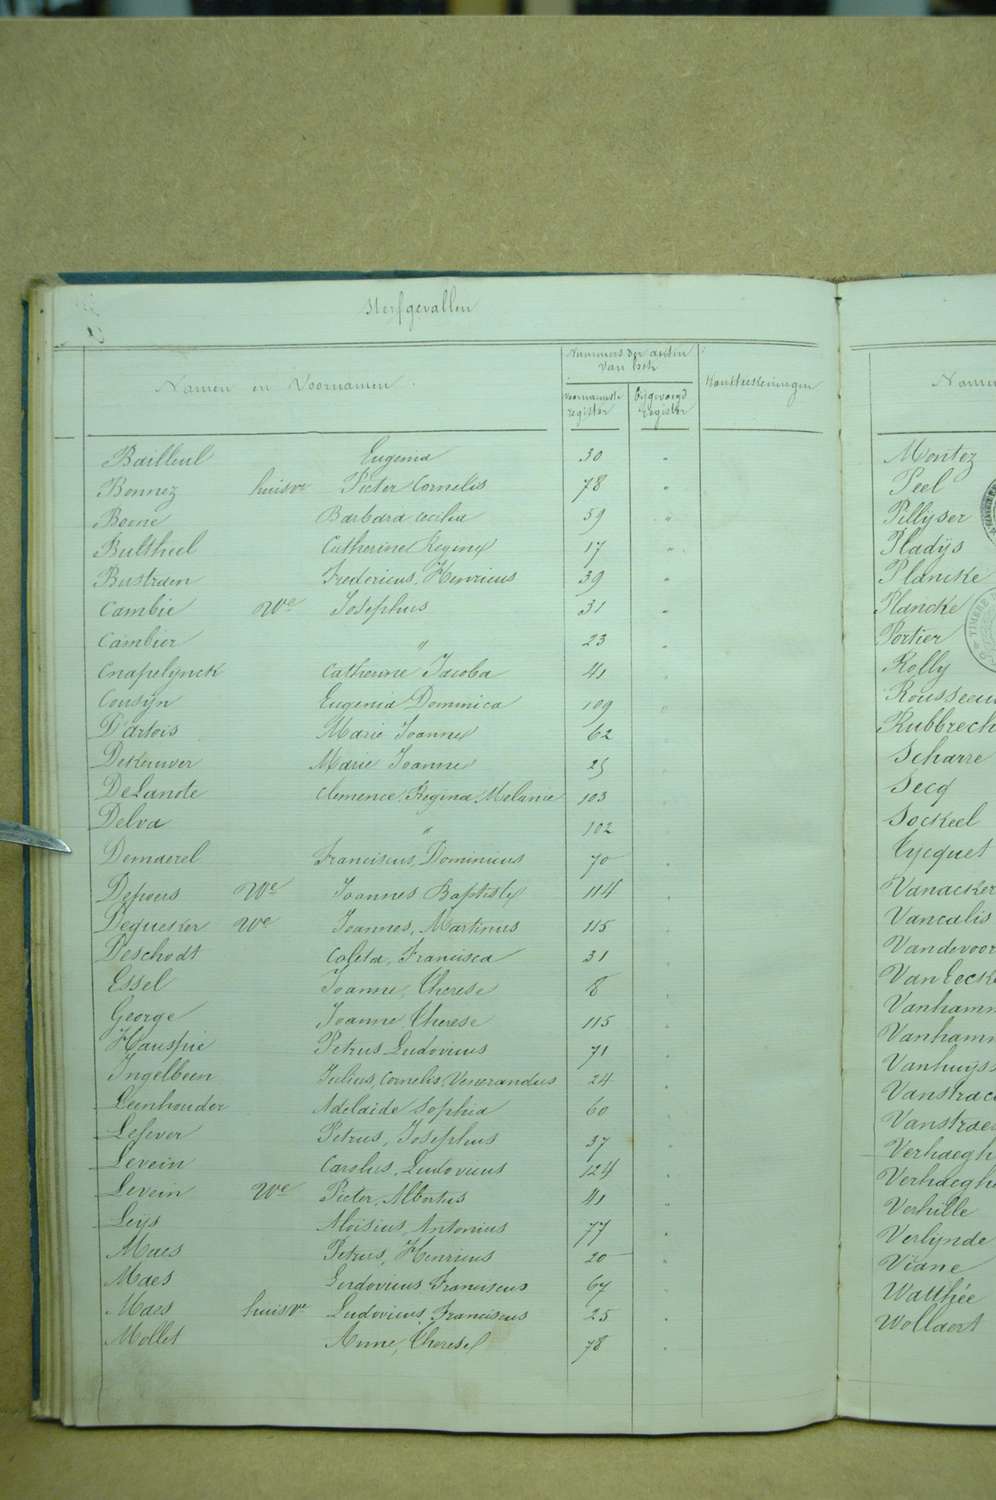 Sterfgevallen
Namen en Voornamen.
Nummers der akten van het
Voornaamste register
Bijgevoegd register
Kantteekeningen
Bailleul Eugenia 30 "
Bonnez huisve Pieter Cornelis 78 "
Boene Barbara Cecilia 59 "
Bultheel Catherine Regine 17 "
Bustraen Fredericus, Henricus 39 "
Cambie We Josephus 31 "
Cambier " 23 "
Cnapelynck Catherine Jacoba 41 "
Cousÿn Eugenia Dominica 109 "
D'artois Marie Joanne 62
Dekeuwer Marie Joanne 25
DeLanote Clemence, Regina, Melanie 103
Delva " 102
Demaerel Franciscus, Dominicus 70
Depoers We Joannes Baptiste 114
Dequeker We Joannes, Martinus 115
Deschodt Coleta, Francisca 31
Essel Joanne, Therese 8
George Joanne, Therese 115
Hauspie Petrus Ludovicus 71
Ingelbeen Julius, Cornelis, Venerandus 24
Leenhouder Adelaide Sophia 60
Lefever Petrus, Josephus 37
Levein Carolus, Ludovicus 124
Levein We Pieter, Albertus 41
Leÿs Aloisius, Antonius 77
Maes Petrus, Henricus 20
Maes Ludovicus Franciscus 67
Maes huisve Ludovicus, Franciscus 25
Mollet Anne, Therese 78
Montez
Peel
Pillyser
Pladÿs
Plancke
Plancke
Portier
Rolly
Rousseeu
Rubbrech
Scharre
Secq
Sockeel
Tycquet
Vanacker
Vancalis
Vandevoor
Van Eecke
Vanhamm
Vanhamm
Vanhuÿss
Vanstrac
Vanstraes
Verhaegh
Verhaeghe
Verhille
Verlynde
Viane
Watthée
Wollaert
TIMBRE